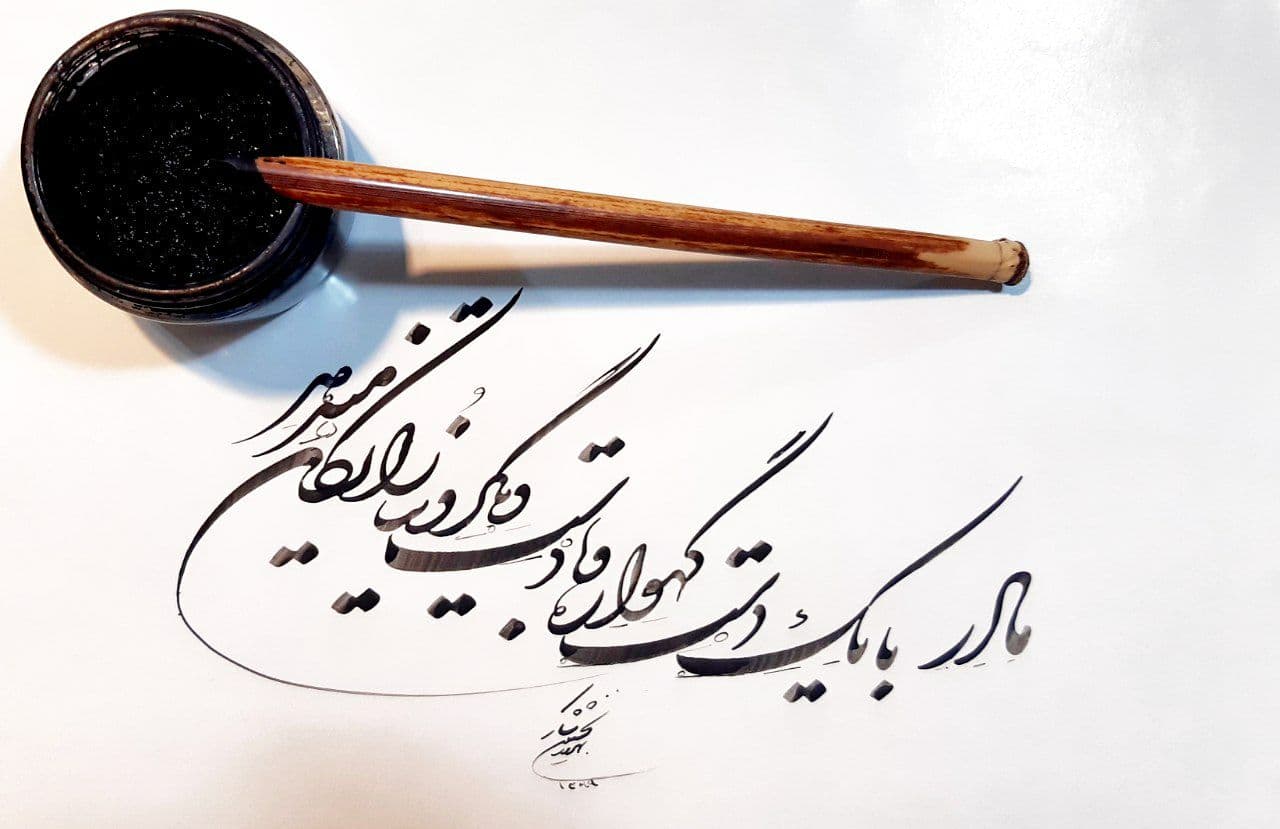 مادر با یک دست گهواره و با دست دیگر دنیا را تکان میدهد